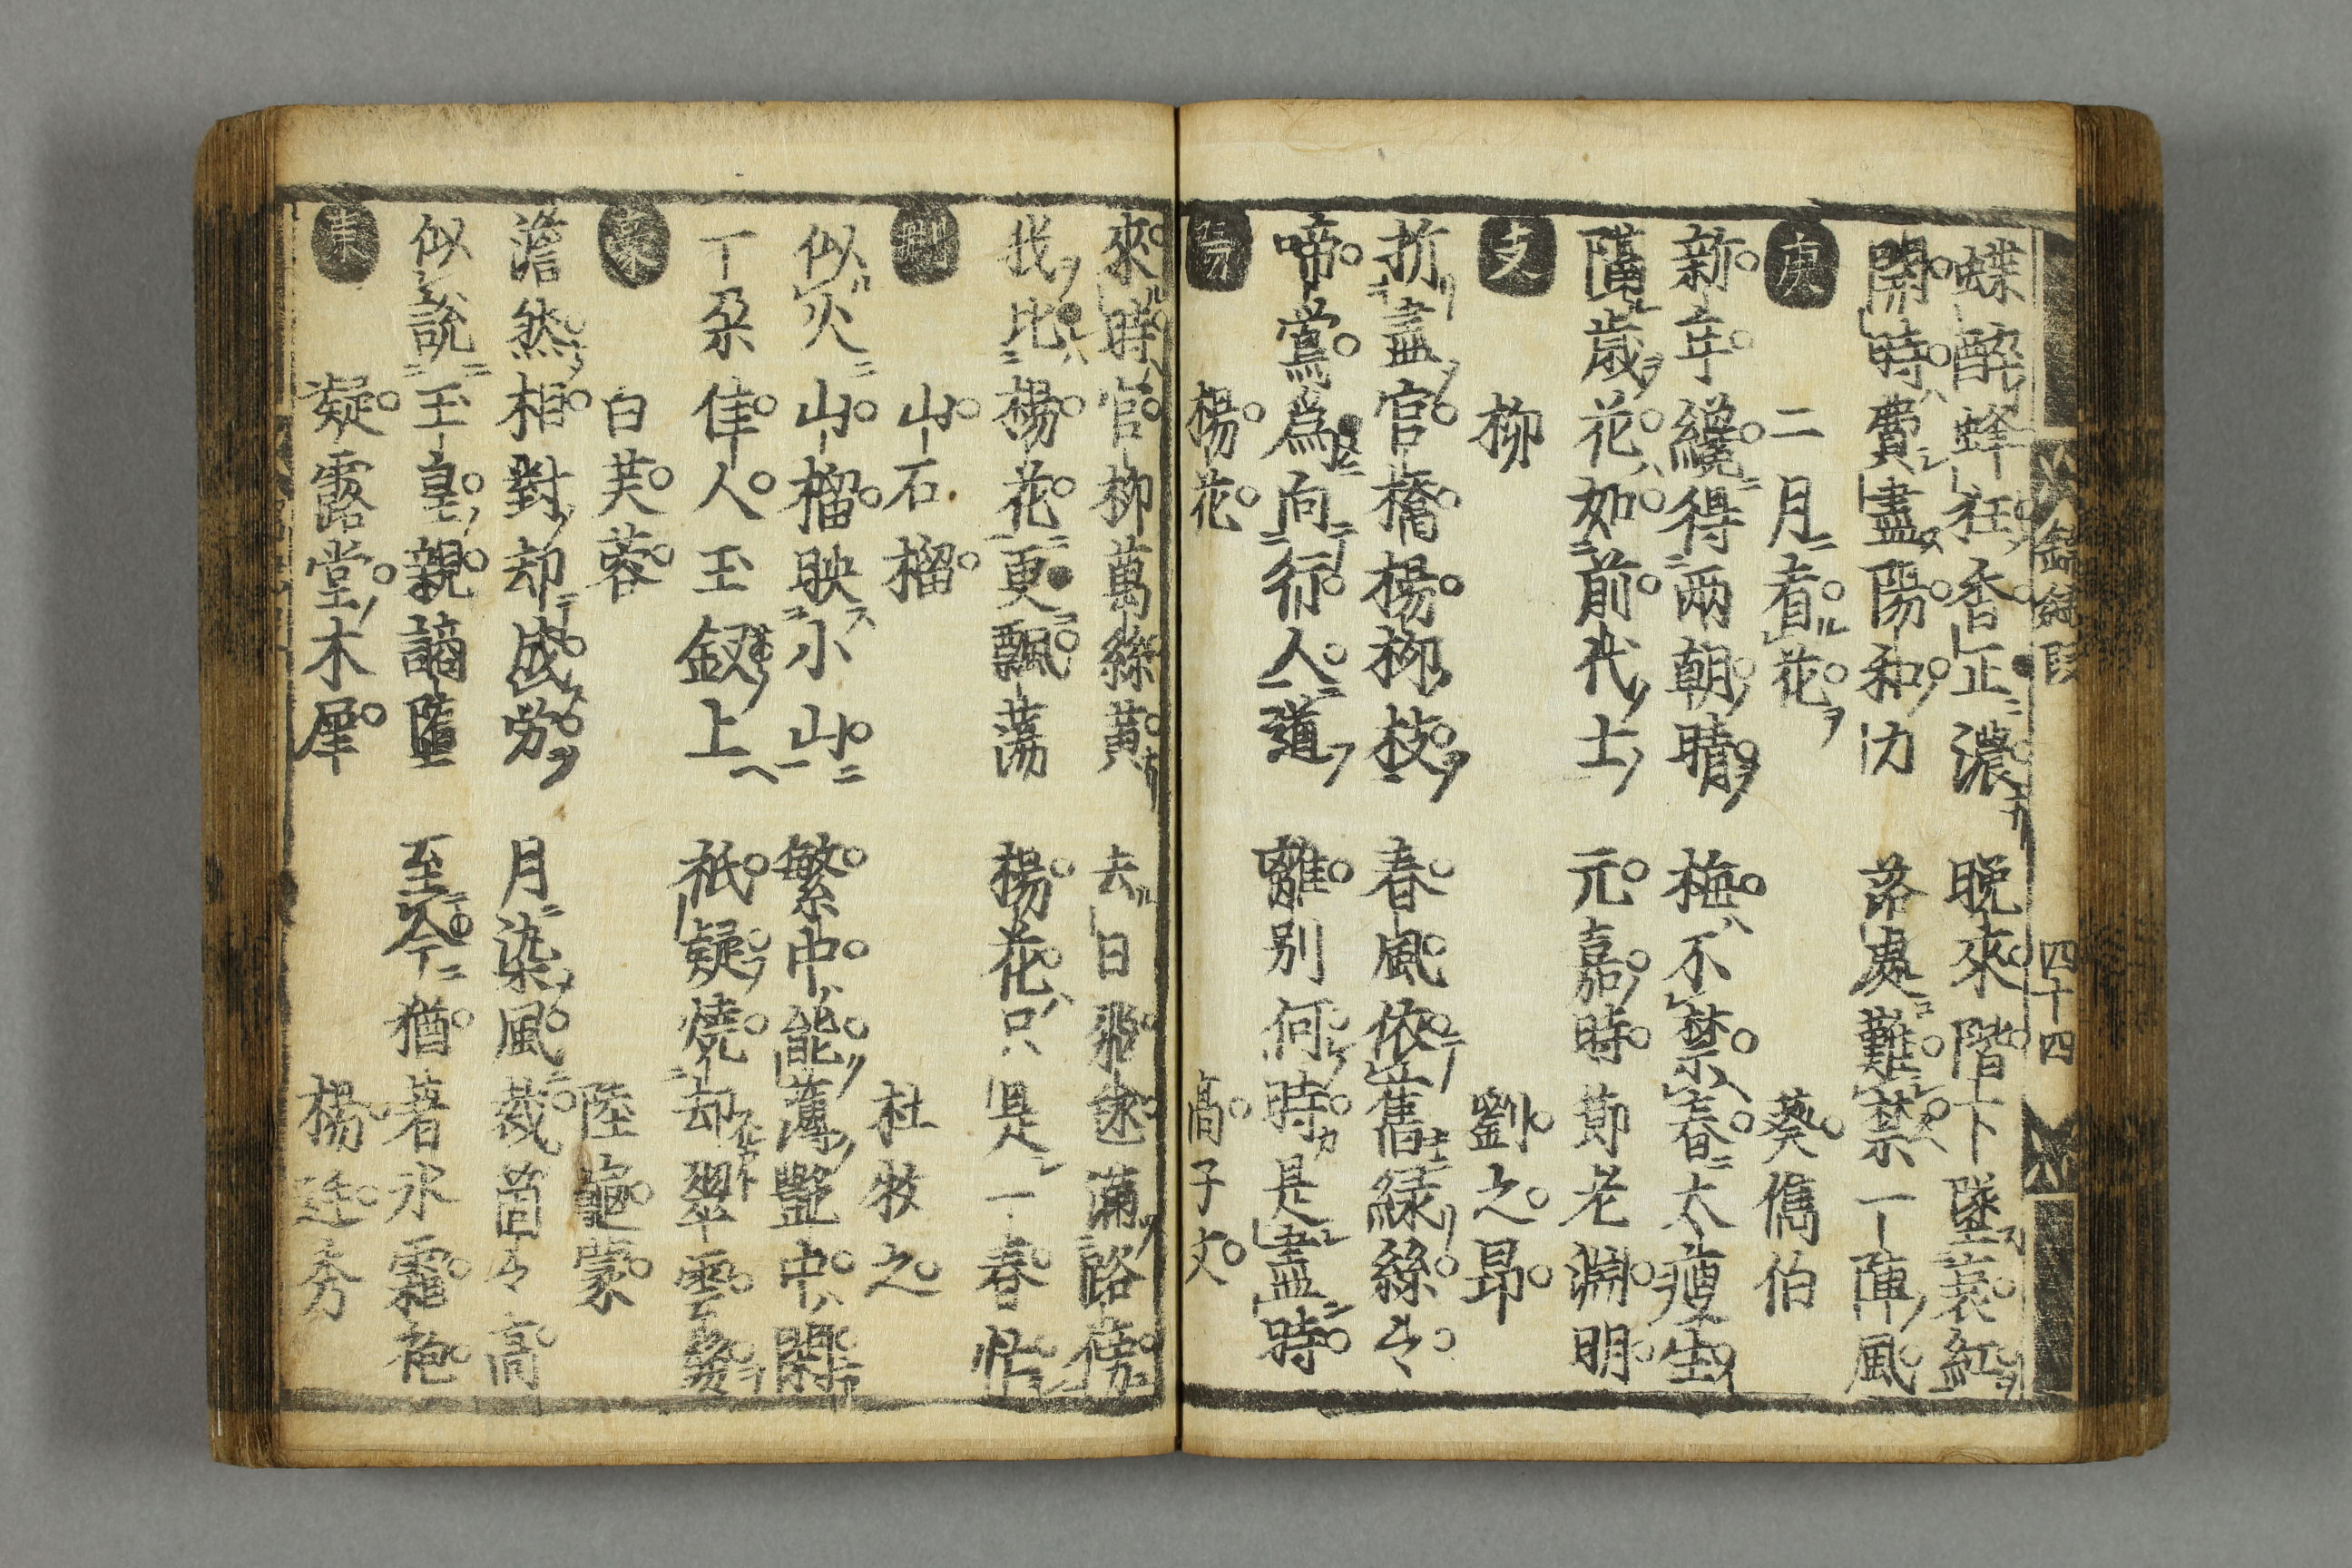 錦繡段 四十四
蝶醉蜂狂香正濃 晚來階下墜衰紅
開時費盡陽和力 落處難禁一陣風
庚 二月看花 蔡儁伯
新年纔得兩朝晴 梅不禁春太瘦生
舊歲花如前代士 元嘉時節老淵明
支 柳 劉之昂
折盡官橋楊柳枝 春風依舊綠絲々
啼鶯爲向行人道 離別何時是盡時
陽 楊花 高子文
來時官柳萬絲黃 去日飛毬滿路傍
我比楊花更飄蕩 楊花只是一春忙
刪 山石榴 杜牧之
似火山榴映小山 繁中能薄艷中閑
一朶佳人玉釵上 祇疑燒却翠雲鬟
豪 白芙蓉 陸龜蒙
澹然相對却成勞 月染風裁箇々高
似說玉皇親謫墮 至今猶著氷霜袍
東 凝露堂木犀 楊廷秀